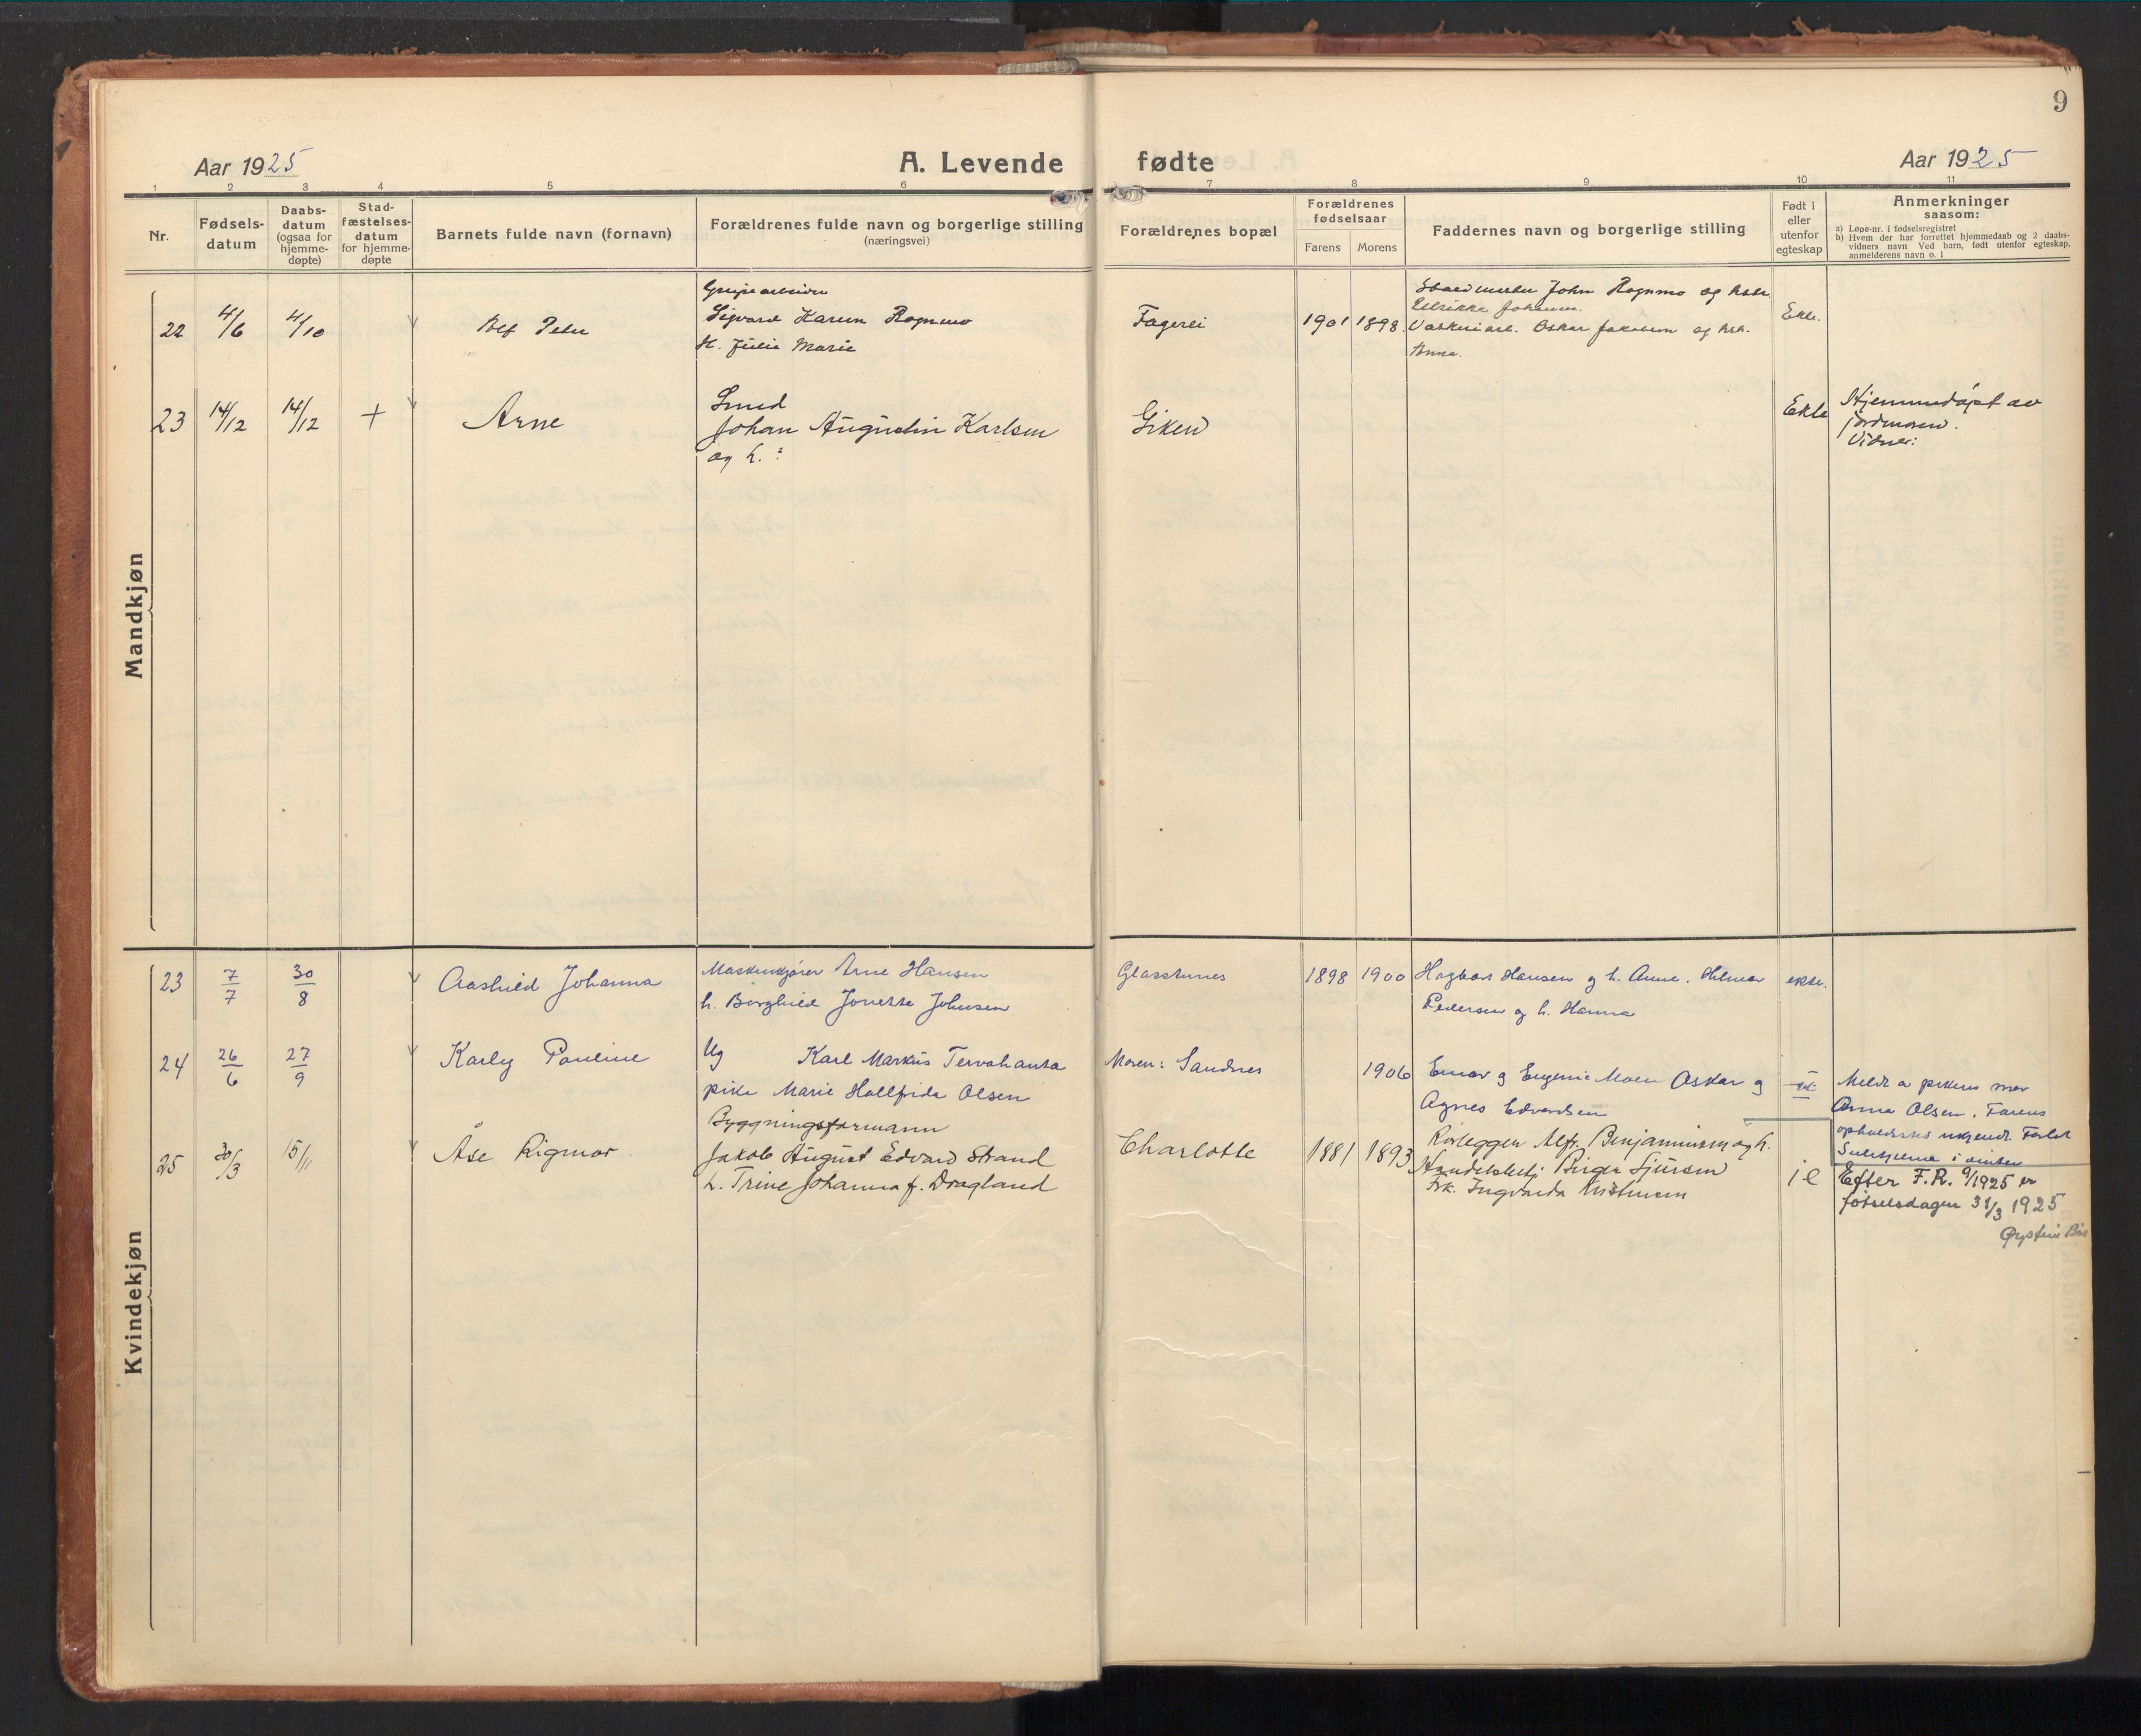 9
Aar 1925
A. Levende
fødte
Aar 1925
1 2 3 4 5 6 7 8 9 10 11
Nr.
Fødsels-
datum
Daabs-
datum
(ogsaa for
hjemme-
døpte)
Stad-
fæstelses-
datum
for hjemme-
døpte
Barnets fulde navn (fornavn)
Forældrenes fulde navn og borgerlige stilling
(næringsvei)
Forældrenes bopæl
Forældrenes
fødselsaar
Farens
Morens
Faddernes navn og borgerlige stilling
Født i
eller
utenfor
egteskap
Anmerkninger
saasom:
a) Løpe-nr. i fødselsregistret
b) Hvem der har forrettet hjemmedaab og 2 daabs-
vidners navn Ved barn, født utenfor egteskap,
anmelderens navn o. l
Mandkjøn
22 4/6 4/10
Peter
Sigvard Rognmo
H. Julie Marie
Fagerli
1901 1898.
John Rognmo og
Johansen.
Oskar Jakobsen og
Anna.
Ekte.
23 14/12 14/12 +
Arne
Smed
Johan Augustin Karlsen
og h. ?
Giken
Ekte
Hjemmedøpt av
jordmoren.
Vidner:
Kvindekjøn
23 7/7 30/8
Aashild Johanna
Maskinkjører Arne Hansen
h. Borghild Jonette Johnsen
Glasstunes
1898 1900
Hagbart Hansen og h. Anne. Hilmar
Pedersen og h. Hanna
ekte.
24 26/6 27/9
Karly Pauline
Ug Karl Markus Tervahanta
pike Marie Hallfrida Olsen
Moren: Sandnes
1906
Einar og Eugenie Moen Oskar og
Agnes Edvardsen
Meldt a pikens mor
Anna Olsen. Farens
opholdssted ukjendt. Forlot
Sulitjelma i vinter
25 30/3 15/11
Åse Rigmor
Byggningsformann
Jakob August Edvard Strand
h. Trine Johanna f. Dragland
Charlotte
1881 1893
Rørlegger Alfr. Benjaminsen og h.
Birger Sjursen
Frk. Ingvarda Kristensen
i e
Efter F.R. 9/1925 er
fødselsdagen 31/3 1925